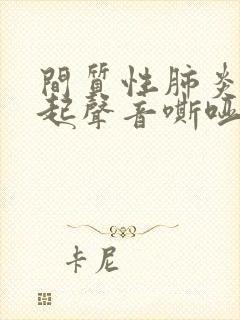 間質性肺炎
起聲音嘶啞
卡尼